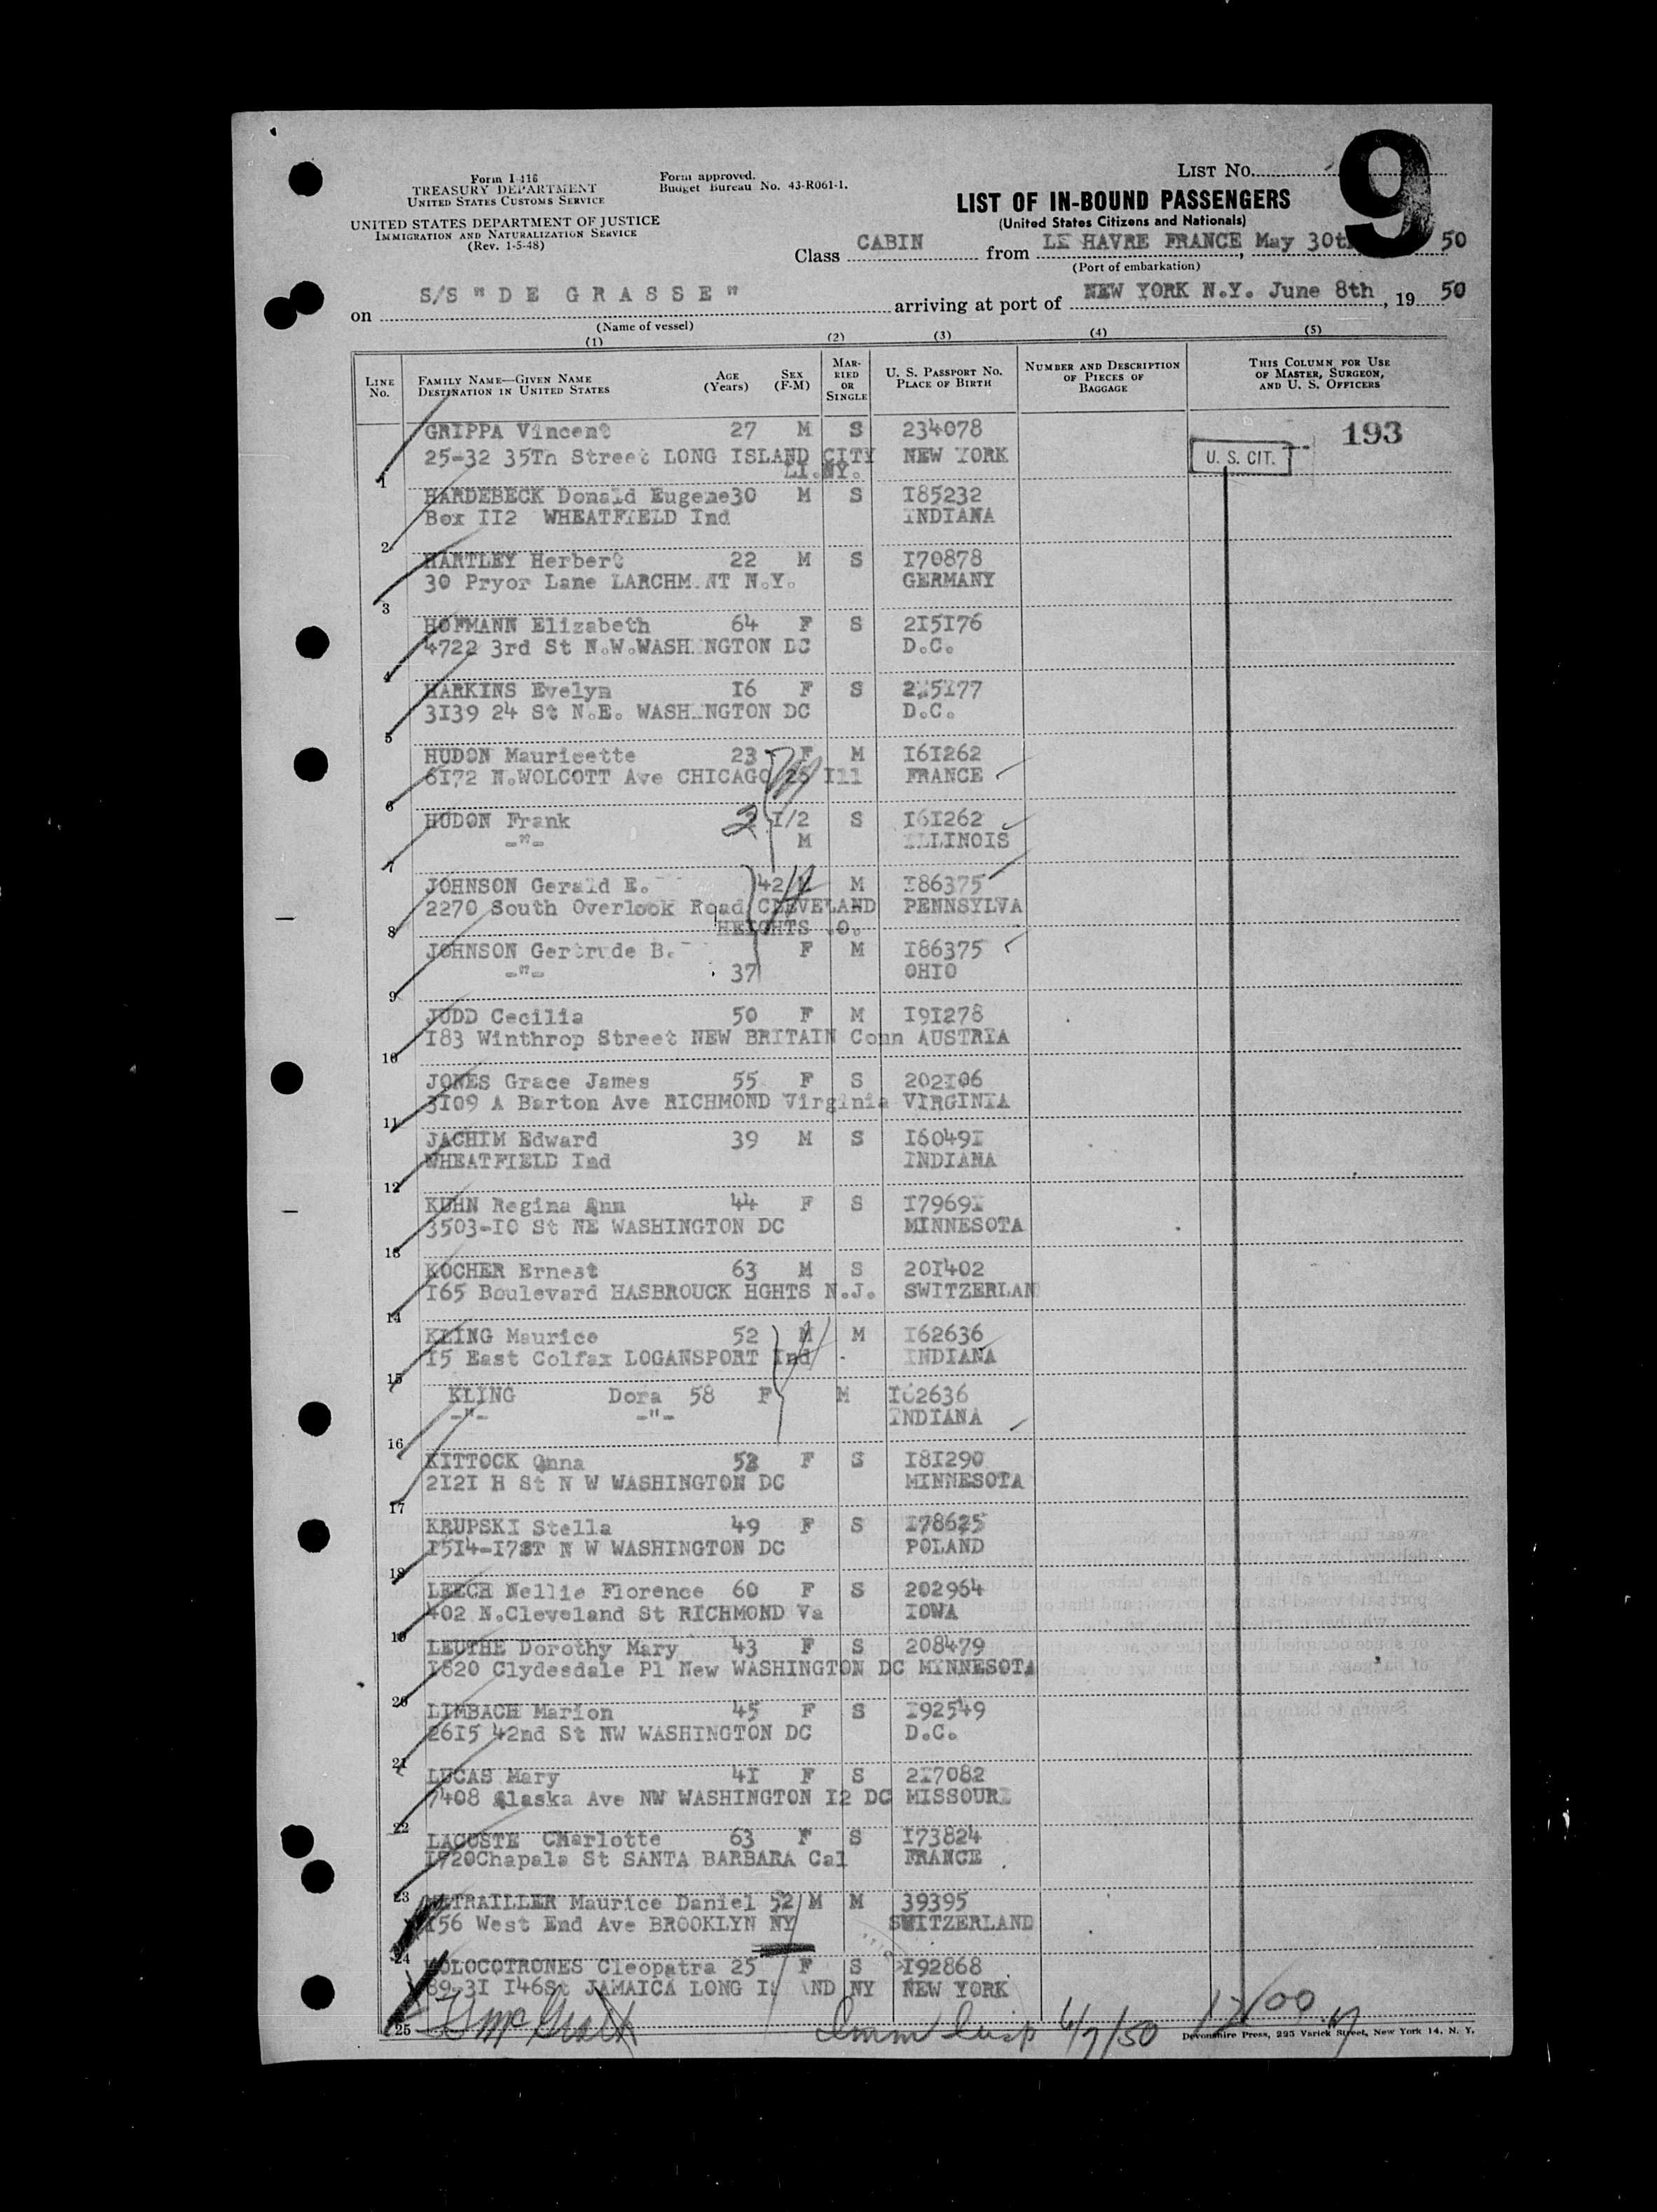 Form I 416
TREASURY DEPARTMENT
UNITED STATES CUSTOMS SERVICE
UNITED STATES DEPARTMENT OF JUSTICE
IMMIGRATION AND NATURALIZATION SERVICE
(Rev. 1-5-48)
Form approved.
Budget Bureau No. 43-R061-1.
LIST No. 9
LIST OF IN-BOUND PASSENGERS
(United States Citizens and Nationals)
Class CABIN from LE HAVRE FRANCE, May 30th 50
(Port of embarkation)
on S/S "DE GRASSE" arriving at port of NEW YORK N.Y. June 8th, 19 50
(Name of vessel)
(1) (2) (3) (4) (5)
LINE No. FAMILY NAME—GIVEN NAME DESTINATION IN UNITED STATES AGE (Years) SEX (F-M) MARRIED OR SINGLE U. S. PASSPORT No. PLACE OF BIRTH NUMBER AND DESCRIPTION OF PIECES OF BAGGAGE THIS COLUMN FOR USE OF MASTER, SURGEON, AND U. S. OFFICERS
GRIPPA Vincent 27 M S 234078 193
25-32 35Th Street LONG ISLAND CITY NEW YORK U. S. CIT.
LI.NY.
1
HARDEBECK Donald Eugene30 M S I85232
Box II2 WHEATFIELD Ind INDIANA
2
HARTLEY Herbert 22 M S I70878
30 Pryor Lane LARCHM NT N.Y. GERMANY
3
HOFMANN Elizabeth 64 F S 2I5I76
4722 3rd St N.W.WASH NGTON DC D.C.
4
HARKINS Evelyn I6 F S 2I5I77
3I39 24 St N.E. WASH NGTON DC D.C.
5
HUDON Mauricette 23 F M I6I262
6I72 N.WOLCOTT Ave CHICAGO 26 Ill FRANCE
6
HUDON Frank 2 I/2 S I6I262
-"- M ILLINOIS
7
JOHNSON Gerald E. 42 M M I86375
2270 South Overlook Road CLEVELAND PENNSYLVA
HEIGHTS .O.
8
JOHNSON Gertrude B. F M I86375
-"- 37 OHIO
9
JUDD Cecilia 50 F M I9I278
I83 Winthrop Street NEW BRITAIN Conn AUSTRIA
10
JONES Grace James 55 F S 202I06
3I09 A Barton Ave RICHMOND Virginia VIRGINIA
11
JACHIM Edward 39 M S I6049I
WHEATFIELD Ind INDIANA
12
KUHN Regina Ann 44 F S I7969I
3503-IO St NE WASHINGTON DC MINNESOTA
13
KOCHER Ernest 63 M S 20I402
I65 Boulevard HASBROUCK HGHTS N.J. SWITZERLAN
14
KLING Maurice 52 M M I62636
I5 East Colfax LOGANSPORT Ind INDIANA
15
KLING Dora 58 F M I62636
-"- -"- INDIANA
16
KITTOCK Anna 53 F S I8I290
2I2I H St N W WASHINGTON DC MINNESOTA
17
KRUPSKI Stella 49 F S I78625
I5I4-I7ST N W WASHINGTON DC POLAND
18
LEECH Nellie Florence 60 F S 202964
402 N.Cleveland St RICHMOND Va IOWA
19
LEUTHE Dorothy Mary 43 F S 208479
I820 Clydesdale Pl New WASHINGTON DC MINNESOTA
20
LIMBACH Marion 45 F S I92549
26I5 42nd St NW WASHINGTON DC D.C.
21
LUCAS Mary 4I F S 2I7082
7408 Alaska Ave NW WASHINGTON I2 DC MISSOURI
22
LACOSTE CHarlotte 63 F S I73824
I920Chapala St SANTA BARBARA Cal FRANCE
23
METRAILLER Maurice Daniel 52 M M 39395
I56 West End Ave BROOKLYN NY SWITZERLAND
24
KOLOCOTRONES Cleopatra 25 F S I92868
89-3I I46St JAMAICA LONG I AND NY NEW YORK
25
McGrath Imm Insp 6/7/50
Devonshire Press, 295 Varick Street, New York 14, N. Y.